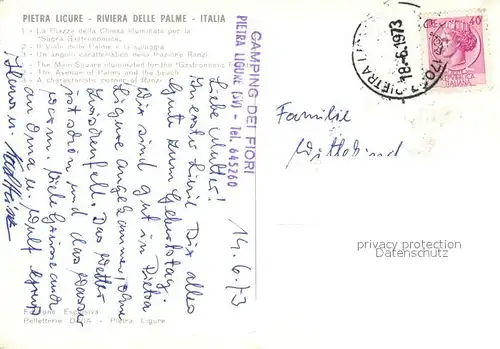 PIETRA LIGURE - RIVIERA DELLE PALME - ITALIA
1 - La Piazza della Chiesa illuminata per la
"Sagra Gastronomica"
2 - Il Viale delle Palme e la spiaggia
3 - Un angolo caratteristico della Frazione Ranzi
1 - The Main Square illuminated for the "Gastronomical
2 - The Avenue of Palms and the beach
3 - A characteristic corner of Ranzi
CAMPING DEI FIORI
PIETRA LIGURE (SV) - Tel. 645260
14.6.73
Liebe Mutter!
Zuerst einmal Dir alles
Gute zum Geburtstag.
Wir sind gut in Pietra
Ligure angekommen, ohne
Das Wetter
ist schön und das Wasser
warm. Viele Grüsse auch
an Oma u. Wulf
Familie
Wittekind
18.6.1973
17027 PIETRA
privacy protection
Datenschutz
Edizione Esclusiva
Pelletterie DADA - Pietra Ligure